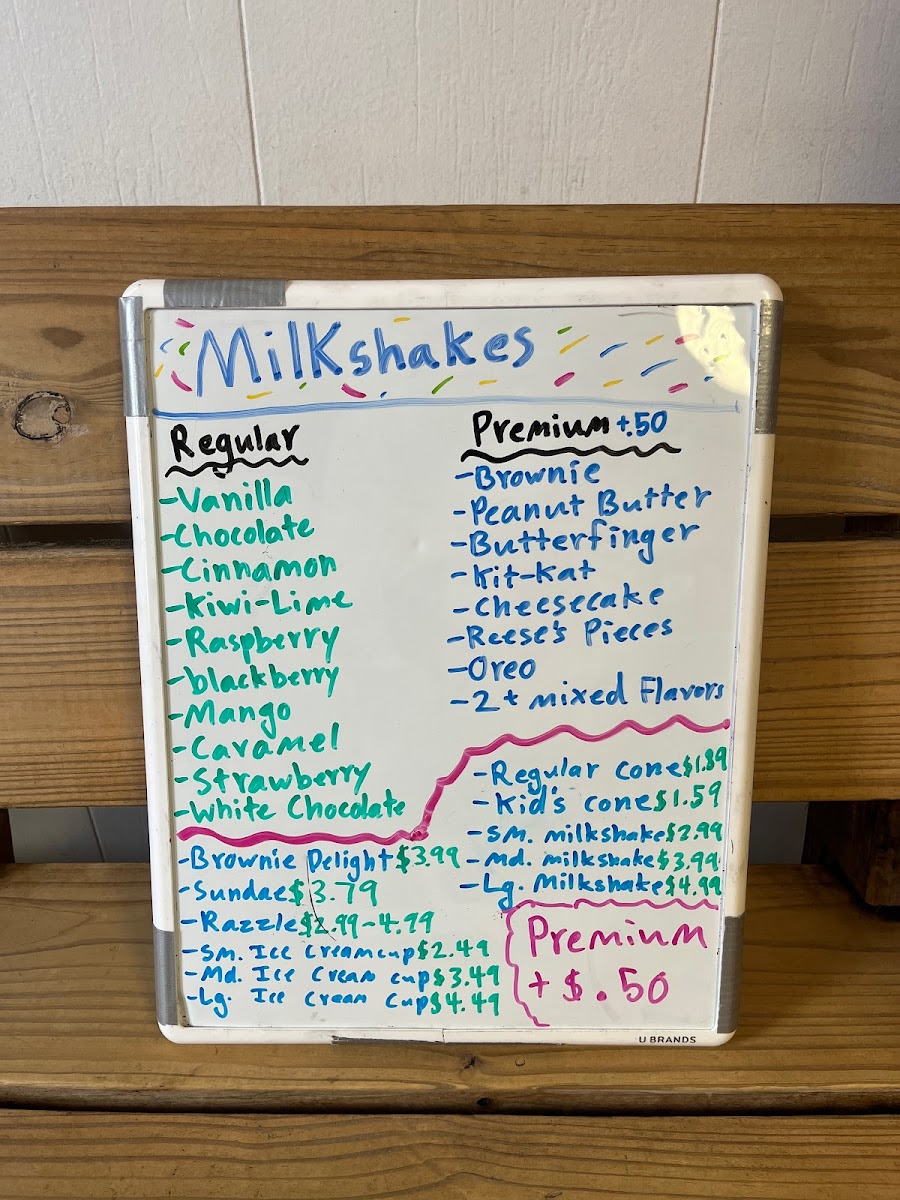 Milkshakes
Regular
-Vanilla
-Chocolate
-Cinnamon
-Kiwi-Lime
-Raspberry
-blackberry
-Mango
-Caramel
-Strawberry
-White Chocolate
Premium +.50
-Brownie
-Peanut Butter
-Butterfinger
-Kit-Kat
-Cheesecake
-Reese's Pieces
-Oreo
-2+ mixed Flavors
-Brownie Delight $3.99
-Sundae $3.79
-Razzle $2.99-4.99
-Sm. Ice Cream cup $2.49
-Md. Ice Cream cup $3.49
-Lg. Ice Cream Cup $4.49
-Regular cone $1.89
-Kid's cone $1.59
-Sm. milkshake $2.99
-Md. milkshake $3.99
-Lg. Milkshake $4.99
Premium
+ $.50
U BRANDS